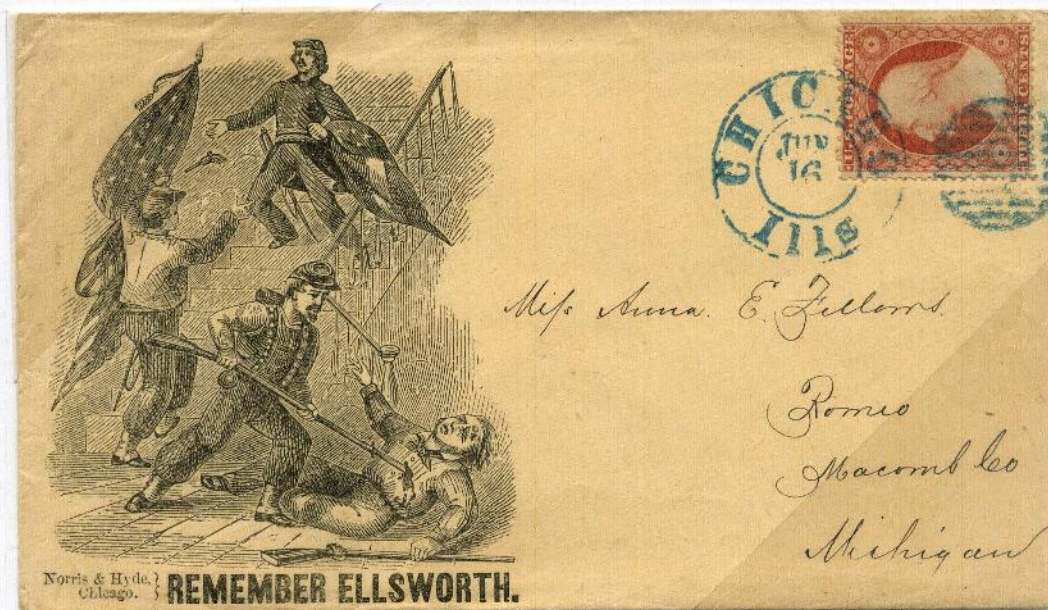 CHIC
JUN
16
Ills
Miſs Anna. E. Fellows.
Romeo
Macomb Co
Michigan
Norris & Hyde,
Chicago.
REMEMBER ELLSWORTH.